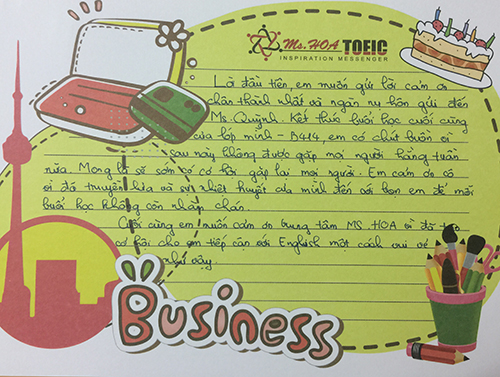 Ms. HOA TOEIC
INSPIRATION MESSENGER
Lời đầu tiên, em muốn gửi lời cám ơn
chân thành nhất và ngàn nụ hôn gửi đến
Ms. Quỳnh. Kết thúc buổi học cuối cùng
của lớp mình - B414, em có chút buồn vì
sau này không được gặp mọi người hằng tuần
nữa. Mong là sẽ sớm có cơ hội gặp lại mọi người. Em cám ơn cô
vì đã truyền lửa và sự nhiệt huyết của mình đến với bọn em để mỗi
buổi học không còn nhàm chán.
Cuối cùng em muốn cám ơn trung tâm MS. HOA vì đã
cơ hội cho em tiếp cận với English một cách vui vẻ
như vậy.
Business